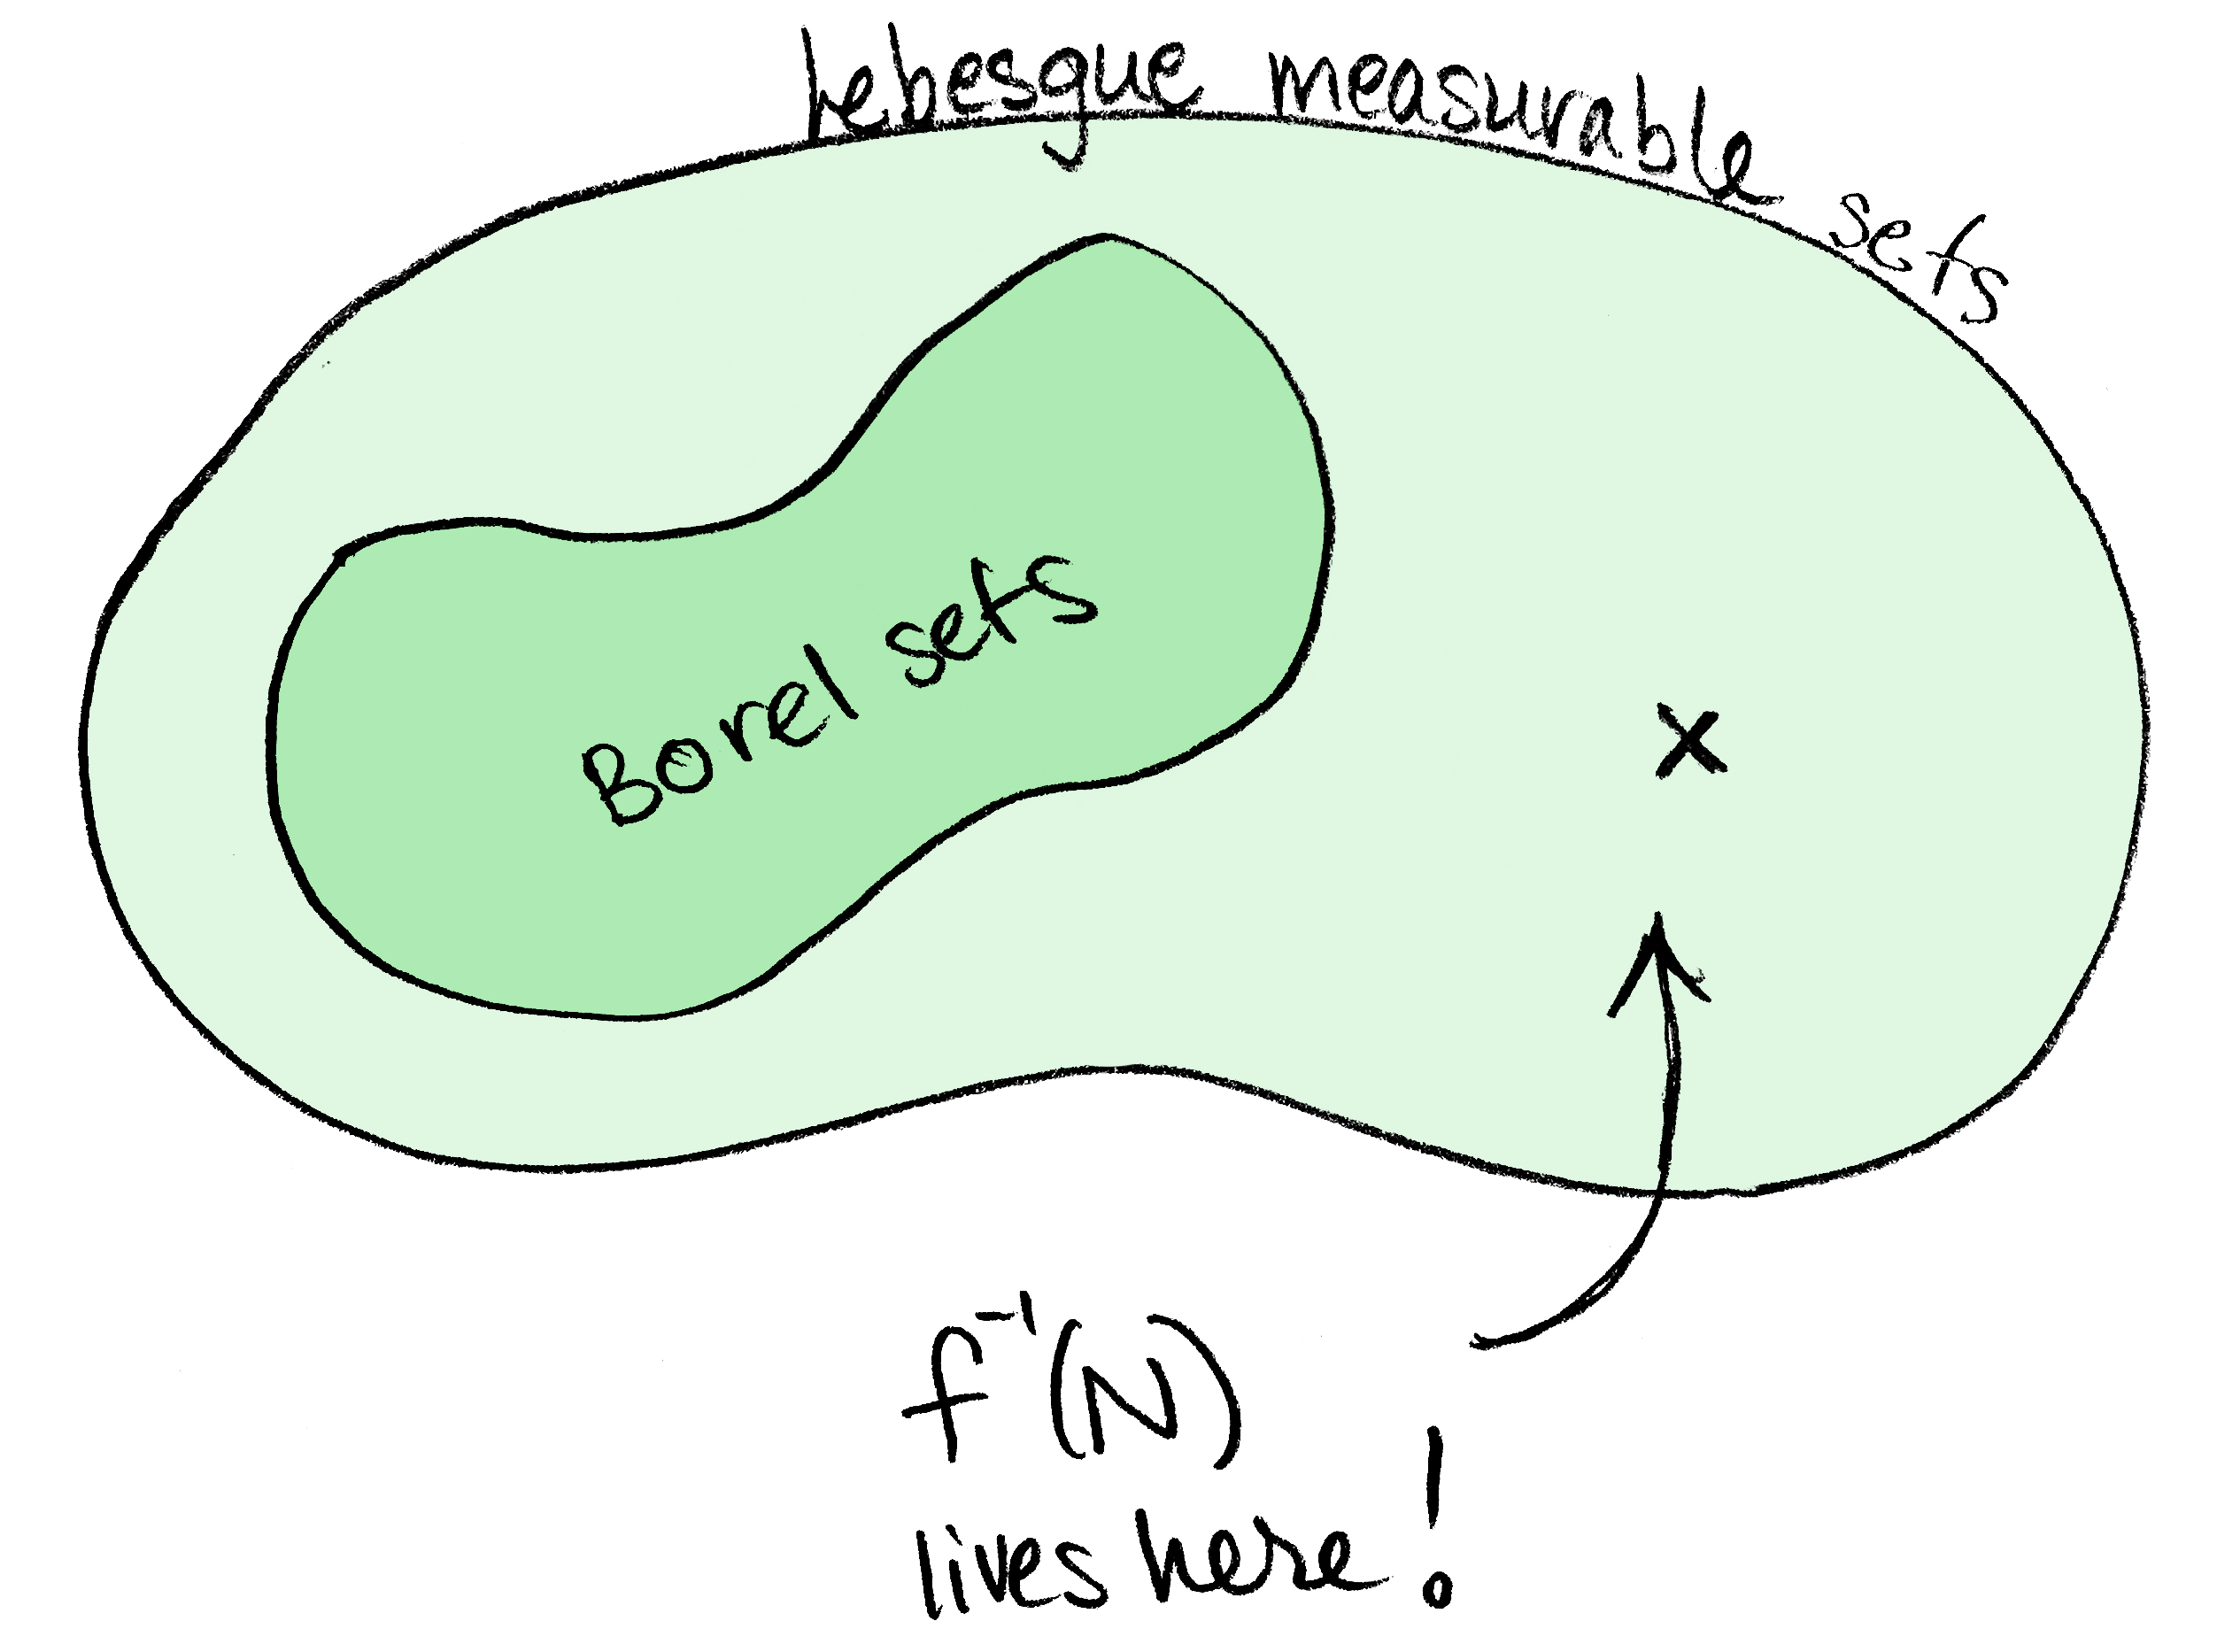 Lebesgue measurable sets
Borel sets
x
f⁻¹(N)
lives here!